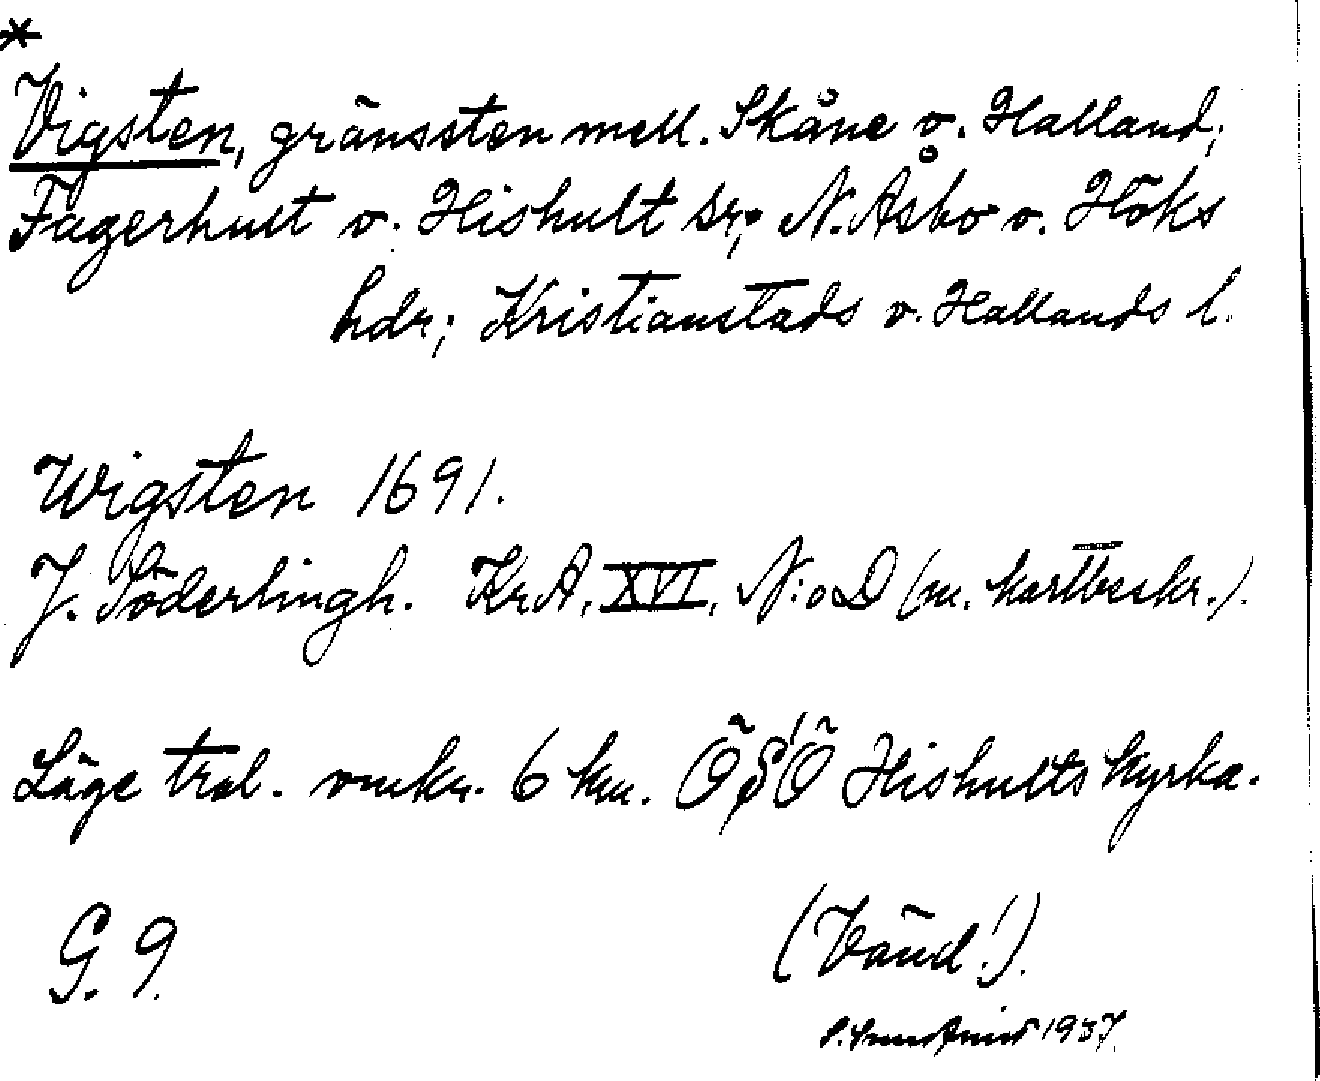 *
Vigsten, gränssten mell. Skåne o. Halland;
Fagerhult o. Hishult sr, N. Åsbo o. Höks
hdr; Kristianstads o. Hallands l.
Wigsten 1691.
J. Söderlingh. KrA, XVI, N:o D (m. kartbeskr.).
Läge trol. omkr. 6 km. ÖSÖ Hishults kyrka.
G. 9.
(Vänd!).
1937.